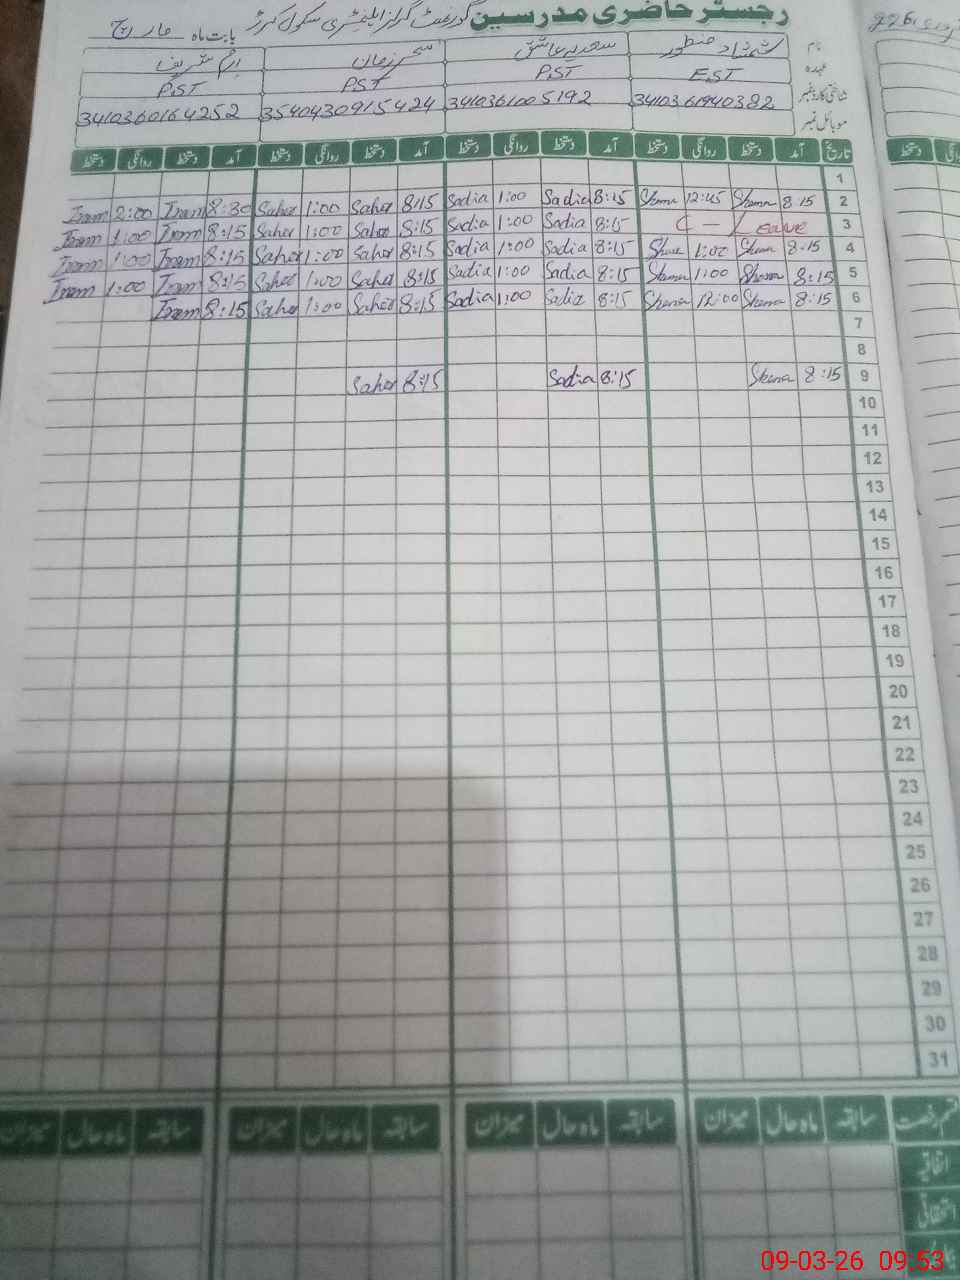 رجسٹر حاضری مدرسین گورنمنٹ گرلز ایلیمنٹری سکول بابت ماہ مارچ
نام شمشاد منظور سعدیہ عاشق سحر زمان ارم شریف
عہدہ EST PST PST PST
شناختی کارڈ نمبر 3410361940382 3410361005192 3540430915424 3410360164252
موبائل نمبر
تاریخ آمد دستخط روانگی دستخط آمد دستخط روانگی دستخط آمد دستخط روانگی دستخط آمد دستخط روانگی دستخط
1
2 8:15 Shama 12:45 Shama 8:15 Sadia 1:00 Sadia 8:15 Saher 1:00 Saher 8:30 Iram 2:00 Iram
3 C - Leave 8:15 Sadia 1:00 Sadia 8:15 Saher 1:00 Saher 8:15 Iram 1:00 Iram
4 8:15 1:00 8:15 Sadia 1:00 Sadia 8:15 Saher 1:00 Saher 8:15 Iram 1:00 Iram
5 8:15 Shama 1:00 Shama 8:15 Sadia 1:00 Sadia 8:15 Saher 1:00 Saher 8:15 Iram 1:00 Iram
6 8:15 Shama 12:00 Shama 8:15 Sadia 1:00 Sadia 8:15 Saher 1:00 Saher 8:15 Iram
7
8
9 8:15 Shama 8:15 Sadia 8:15 Saher
10
11
12
13
14
15
16
17
18
19
20
21
22
23
24
25
26
27
28
29
30
31
قسم رخصت سابقہ ماہ حال میزان سابقہ ماہ حال میزان سابقہ ماہ حال میزان سابقہ ماہ حال میزان
اتفاقیہ
استحقاقی
09-03-26 09:53